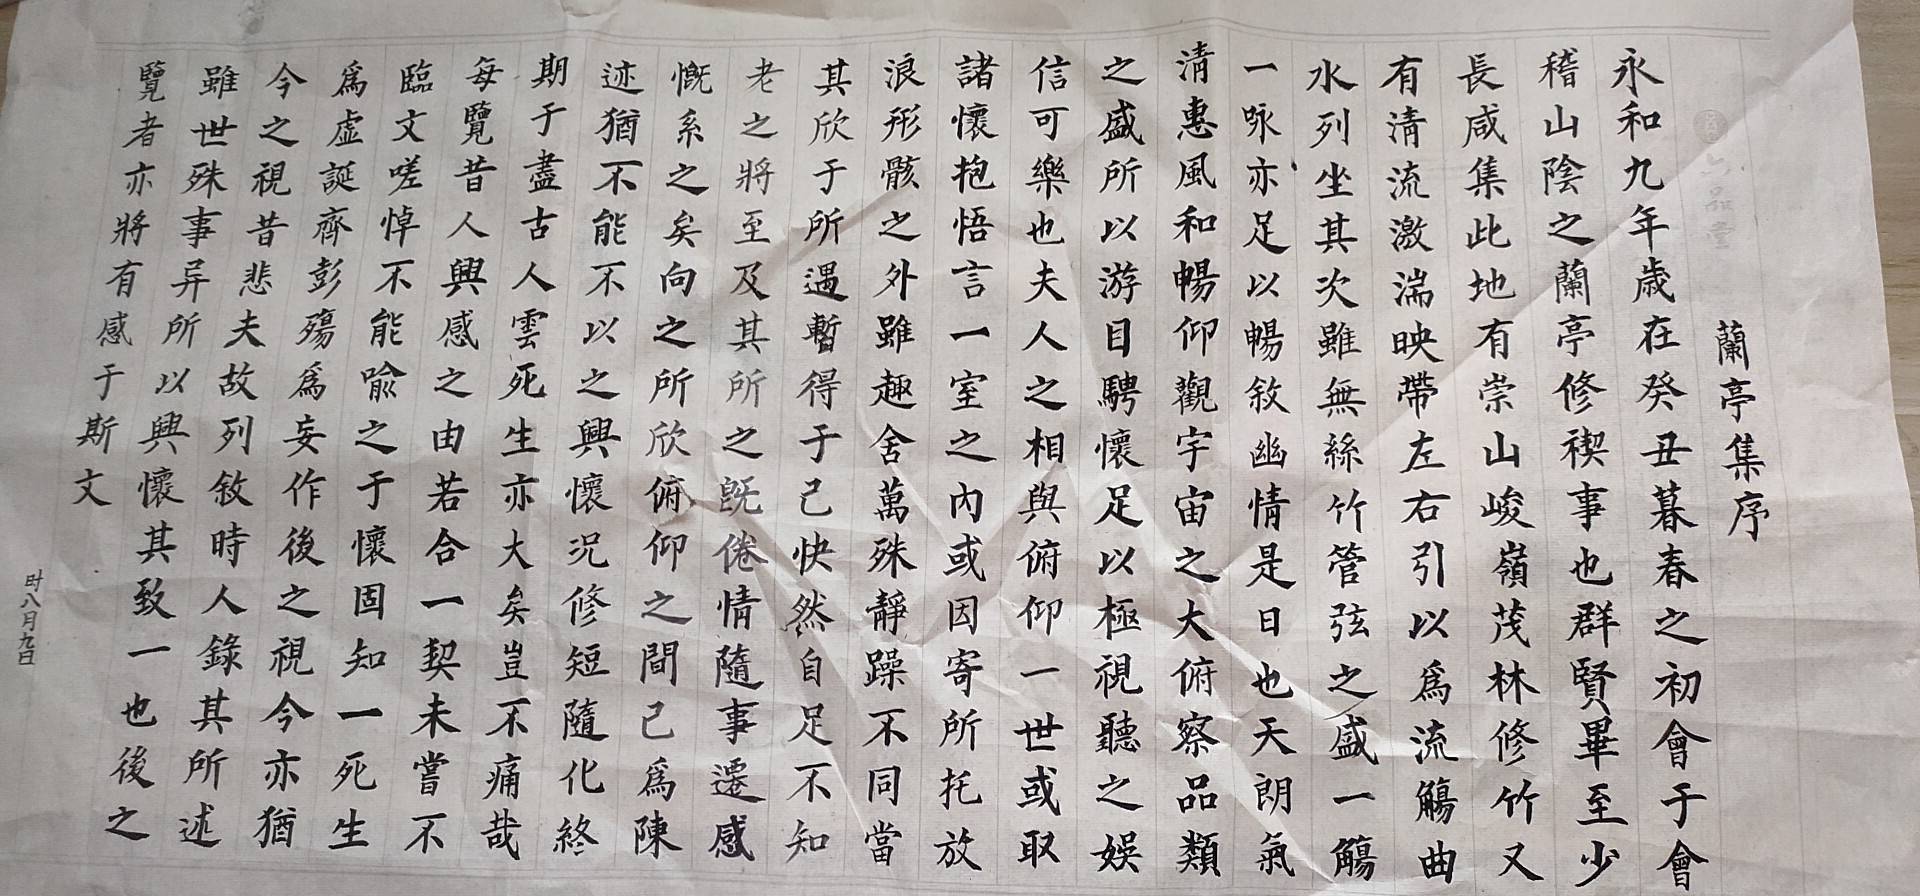 六品堂
蘭亭集序
永和九年歲在癸丑暮春之初會于會
稽山陰之蘭亭修禊事也群賢畢至少
長咸集此地有崇山峻嶺茂林修竹又
有清流激湍映帶左右引以爲流觴曲
水列坐其次雖無絲竹管弦之盛一觴
一咏亦足以暢敘幽情是日也天朗氣
清惠風和暢仰觀宇宙之大俯察品類
之盛所以游目騁懷足以極視聽之娛
信可樂也夫人之相與俯仰一世或取
諸懷抱悟言一室之內或因寄所托放
浪形骸之外雖趣舍萬殊靜躁不同當
其欣于所遇暫得于己快然自足不知
老之將至及其所之既倦情隨事遷感
慨系之矣向之所欣俯仰之間已爲陳
迹猶不能不以之興懷況修短隨化終
期于盡古人雲死生亦大矣豈不痛哉
每覽昔人興感之由若合一契未嘗不
臨文嗟悼不能喻之于懷固知一死生
爲虛誕齊彭殤爲妄作後之視今亦猶
今之視昔悲夫故列敘時人錄其所述
雖世殊事异所以興懷其致一也後之
覽者亦將有感于斯文
时八月九日